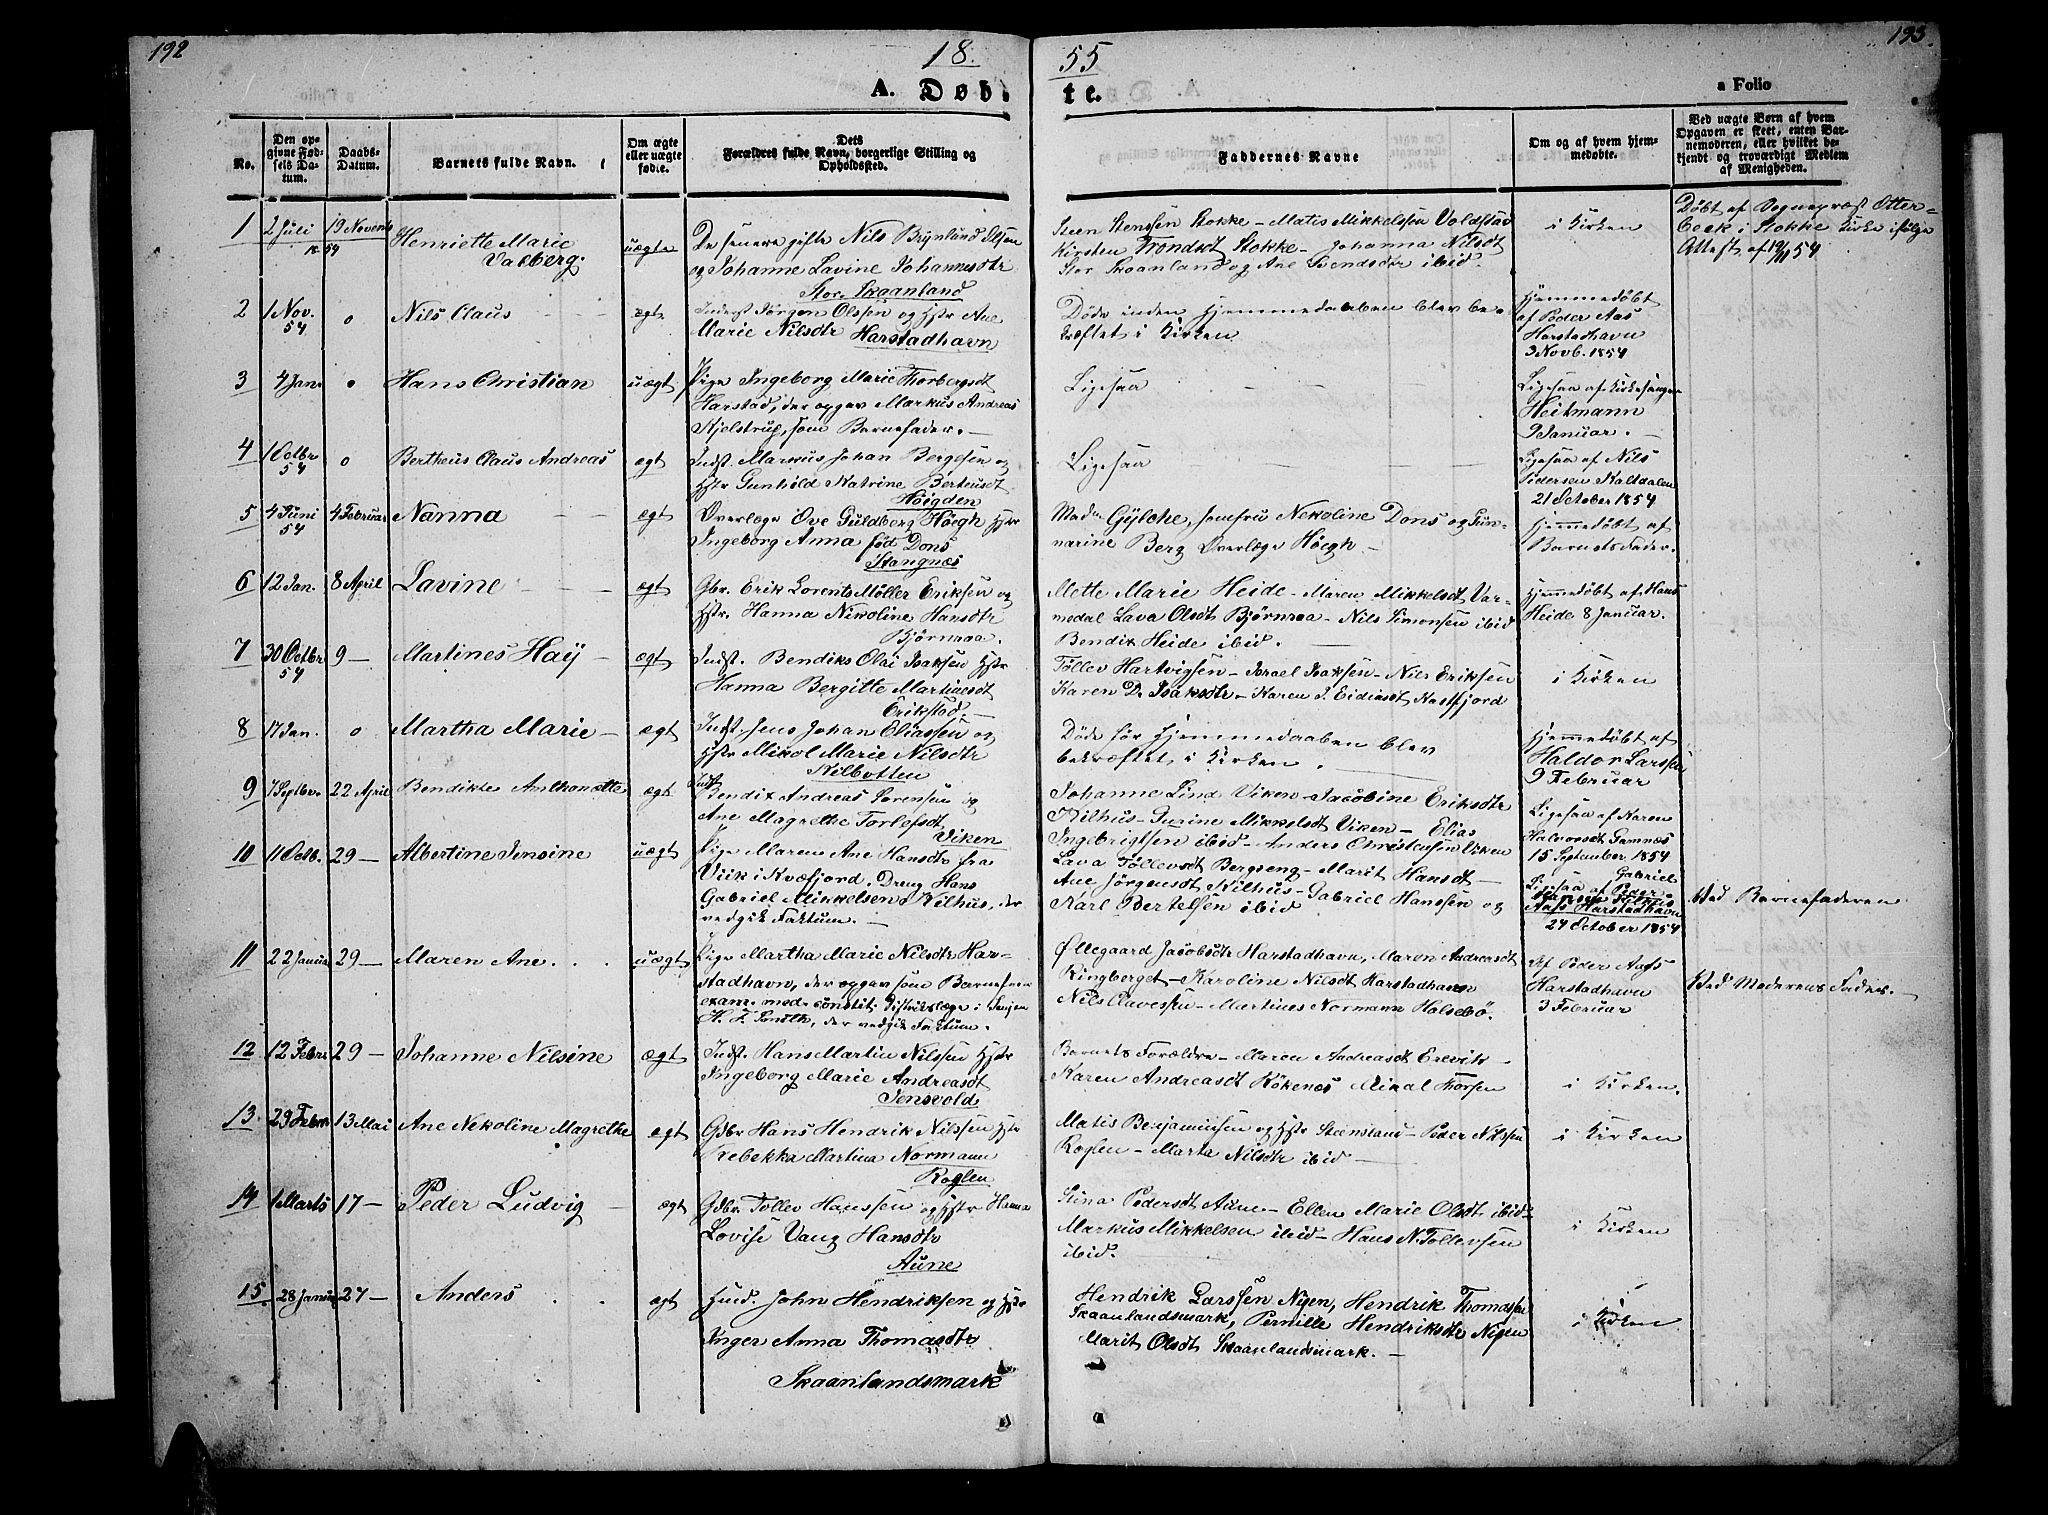 192
18.
55
193.
A. Døb-
te.
a Folio
No.
Den op-
givne Fød-
sels Da-
tum.
Daabs-
Datum.
Barnets fulde Navn.
Om ægte
eller uægte
fødte.
Dets
Forældres fulde Navn, borgerlige Stilling og
Opholdssted.
Faddernes Navne
Om og af hvem hjem-
medøbte.
Ved uægte Børn af hvem
Opgaven er skeet, enten Bar-
nemoderen, eller hvilket be-
kjendt og troværdigt Medlem
af Menigheden.
1
2 Juli
19 Novemb
18 54
Henriette Marie
Valberg.
uægte
De senere gifte Nils Brynlund Olsen
og Johanne Lavine Johannesdtr
Stor Skaanland
Steen Stenssen Stokke – Matis Mikkelsen Voldstad
Kirsten Trondsdt Stokke – Johanna Nilsdt
Stor Skaanland og Ane Svendsdtr ibid.
i Kirken
Døbt af Sognepræst Otter-
beck i Stokke Kirke ifølge
Attest af 19/11 54
2
1 Nov.
54
o
Nils Claus
ægte
Inderst Jørgen Olssen og Hstr Ane
Marie Nilsdtr Harstadhavn
Døde inden Hjemmedaaben blev be-
kræftet i Kirken
Hjemmedøbt
af Peder Aas
Harstadhavn
3 Novb. 1854
3
4 Jan.
o
Hans Christian
uægt
Pige Ingeborg Marie Thorbergsdt
Harstad, der opgav Markus Andreas
Kjelstrup, som Barnefader. –
Ligesaa
Ligesaa af Kirkesanger
Heitmann
9 Januar. –
4
1 Octbr
54
o
Bertheus Claus Andreas
ægt
Indst. Markus Johan Bergesen og
Hstr Gunhild Katrine Berteusdt
Høigden
Ligesaa
Ligesaa af Nils
Pedersen Kaltdalen
21 October 1854
5
4 Juni
54
4 Februar
Nanna
ægt
Overlæge Ove Guldberg Høegh Hstr
Ingeborg Anna født Dons
Stangnæs
Madm Gylche, Jomfru Nekoline Dons og Gun-
narine Berg Overlæge Høegh –
Hjemmedøbt af
Barnets Fader.
6
12 Jan.
8 April
Lavine
ægt
Gbr. Erik Lorents Møller Eriksen og
Hstr. Hanna Nikoline Hansdtr
Bjørnraa.
Mette Marie Heide – Maren Mikkelsdt Var-
medal Lava Olsdt Bjørnraa – Nils Simonsen ibid
Bendix Heide ibid. –
Hjemmedøbt af Hans
Heide 8 Januar.
7
30 Octbr
54
9 –
Martines Haÿ –
ægt
Indst. Bendiks Olai Isaksen Hstr
Hanna Bergitte Martinusdt
Erikstad.
Tøllev Hartvigsen – Israel Isaksen – Nils Eriksen
Karen D. Isaksdtr – Karen S. Eidiasdt Kastfjord
i Kirken
8
17 Jan.
o
Martha Marie –
ægt
Indst. Jens Johan Eliassen og
Hstr Mikol Marie Nilsdtr
Kilbotten
Døde før Hjemmedaaben blev
bekræftet i Kirken.
Hjemmedøbt af
Haldor Larssen
9 Februar
9
7 Septbr.
22 April
Bendikte Anthonette
ægt
Indst
Bendix Andreas Sørensen og
Ane Magrethe Torlefsdt
Viken
Johanne Lind Viken – Jacobine Eriksdtr
Kilhus – Gurine Mikkelsdt Viken – Elias
Ingebrigtsen ibid – Anders Christensen Viken
Ligesaa af Karen
Halvorsdt Gamnæs
15 September 1854
10
11 Octb.
29 –
Albertine Jensine
uægt
Pige Maren Ane Hansdtr fra
Viik i Kvæfjord. Dreng Hans
Gabriel Mikkelsen Kilhus, der
vedgik Faktum. –
Lava Tøllevsdt Bergseng – Marit Hansdt –
Ane Jørgensdt Kilhus – Gabriel Hanssen og
Karl Bertelsen ibid
Ligesaa af Peder
Aas Harstadhavn
24 October 1854
Ved Barnefaderen
11
22 Januar
29 –
Maren Ane.
uægt
Pige Martha Marie Nilsdtr Har-
stadhavn, der opgav som Barnefader
exam. med. constit. Distriktslæge i Senjen
der vedgik Faktum.
Øllegaard Jacobsdtr Harstadhavn, Maren Andreasdt
Ringberget – Karoline Nilsdt Harstadhavn
Nils Clavessen – Martines Normann Halsebø.
Af Peder Aas
Harstadhavn
3 Februar
Ved Moderens Fader. –
12
12 Febr.
29 –
Johanne Nilsine
ægt
Indst. Hans Martin Nilssen Hstr
Ingeborg Marie Andreasdt
Jensvold
Barnets Forældre – Maren Andreasdt Erevik –
Karen Andreasdt Røkenæs Mikal Thorsen
i Kirken.
13.
23 Febr.
13 Mai
Ane Nekoline Magrethe
ægt
Gdbr Hans Hendrik Nilssen Hstr
Rebekka Martina Normann
Roglen
Matis Benjaminsen og Hstr Steensland – Peder Nilssen
Roglen – Marta Nilsdtr ibid –
i Kirken
14
1 Marts
17 –
Peder Ludvig
ægt
Gdbr Tøllev Hanssen og Hstr Hanna
Lovise Vang Hansdtr
Aune
Stina Pedersdt Aune – Ellen Marie Olsdt ibid
Markus Mikkelsen ibid – Hans N. Tøllevsen
ibid.
i Kirken
15.
28 Januar
27 –
Anders
ægt
Huud. John Hendriksen og Hstr
Inger Anna Thomasdtr
Skaanlandsmark
Hendrik Larssen Nigen, Hendrik Thomassen
Skaanlandsmark, Pernille Hendriksdtr Nigen
Marit Olsdt Skaanlandsmark. –
i Kirken